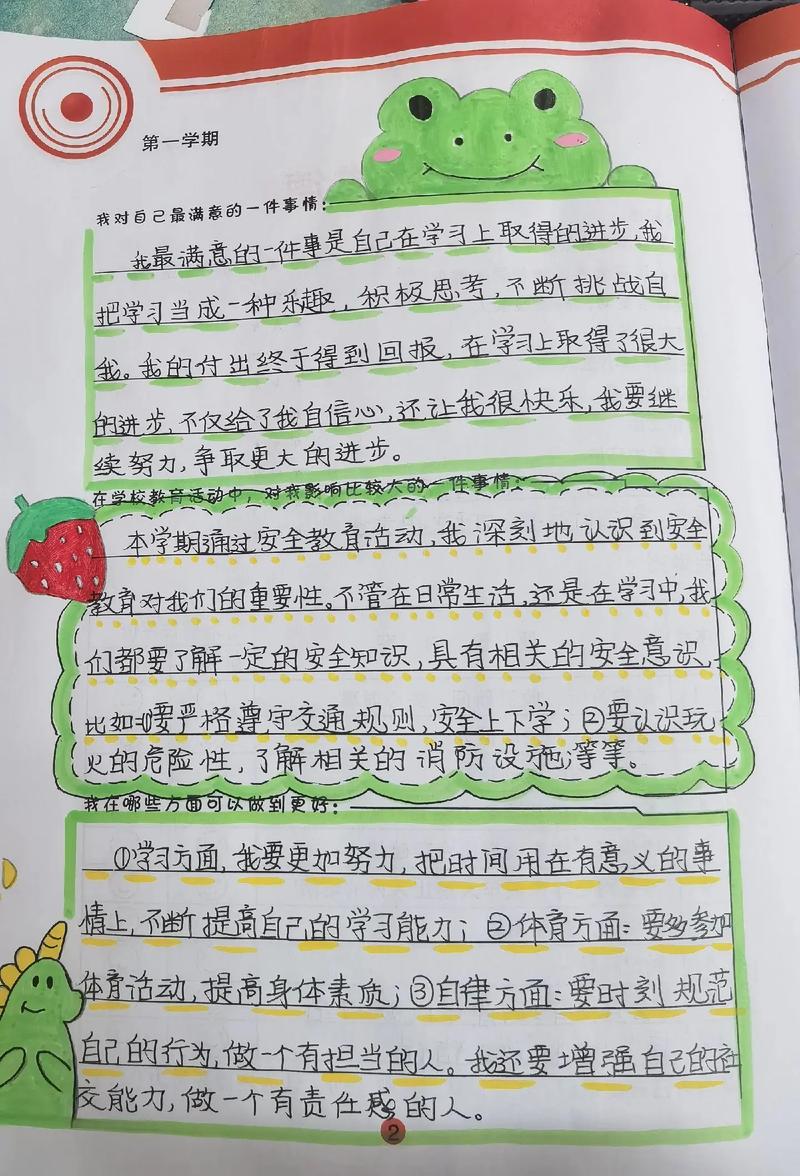 第一学期
我对自己最满意的一件事情:
我最满意的一件事是自己在学习上取得的进步,我
把学习当成一种乐趣,积极思考,不断挑战自
我。我的付出终于得到回报,在学习上取得了很大
的进步,不仅给了我自信心,还让我很快乐,我要继
续努力,争取更大的进步。
在学校教育活动中,对我影响比较大的一件事情:
本学期通过安全教育活动,我深刻地认识到安全
教育对我们的重要性。不管在日常生活,还是在学习中,我
们都要了解一定的安全知识,具有相关的安全意识,
比如:①要严格遵守交通规则,安全上下学;②要认识玩
火的危险性,了解相关的消防设施;等等。
我在哪些方面可以做到更好:
①学习方面,我要更加努力,把时间用在有意义的事
情上,不断提高自己的学习能力;②体育方面:要多参加
体育活动,提高身体素质;③自律方面:要时刻规范
自己的行为,做一个有担当的人。我还要增强自己的社
交能力,做一个有责任感的人。
2